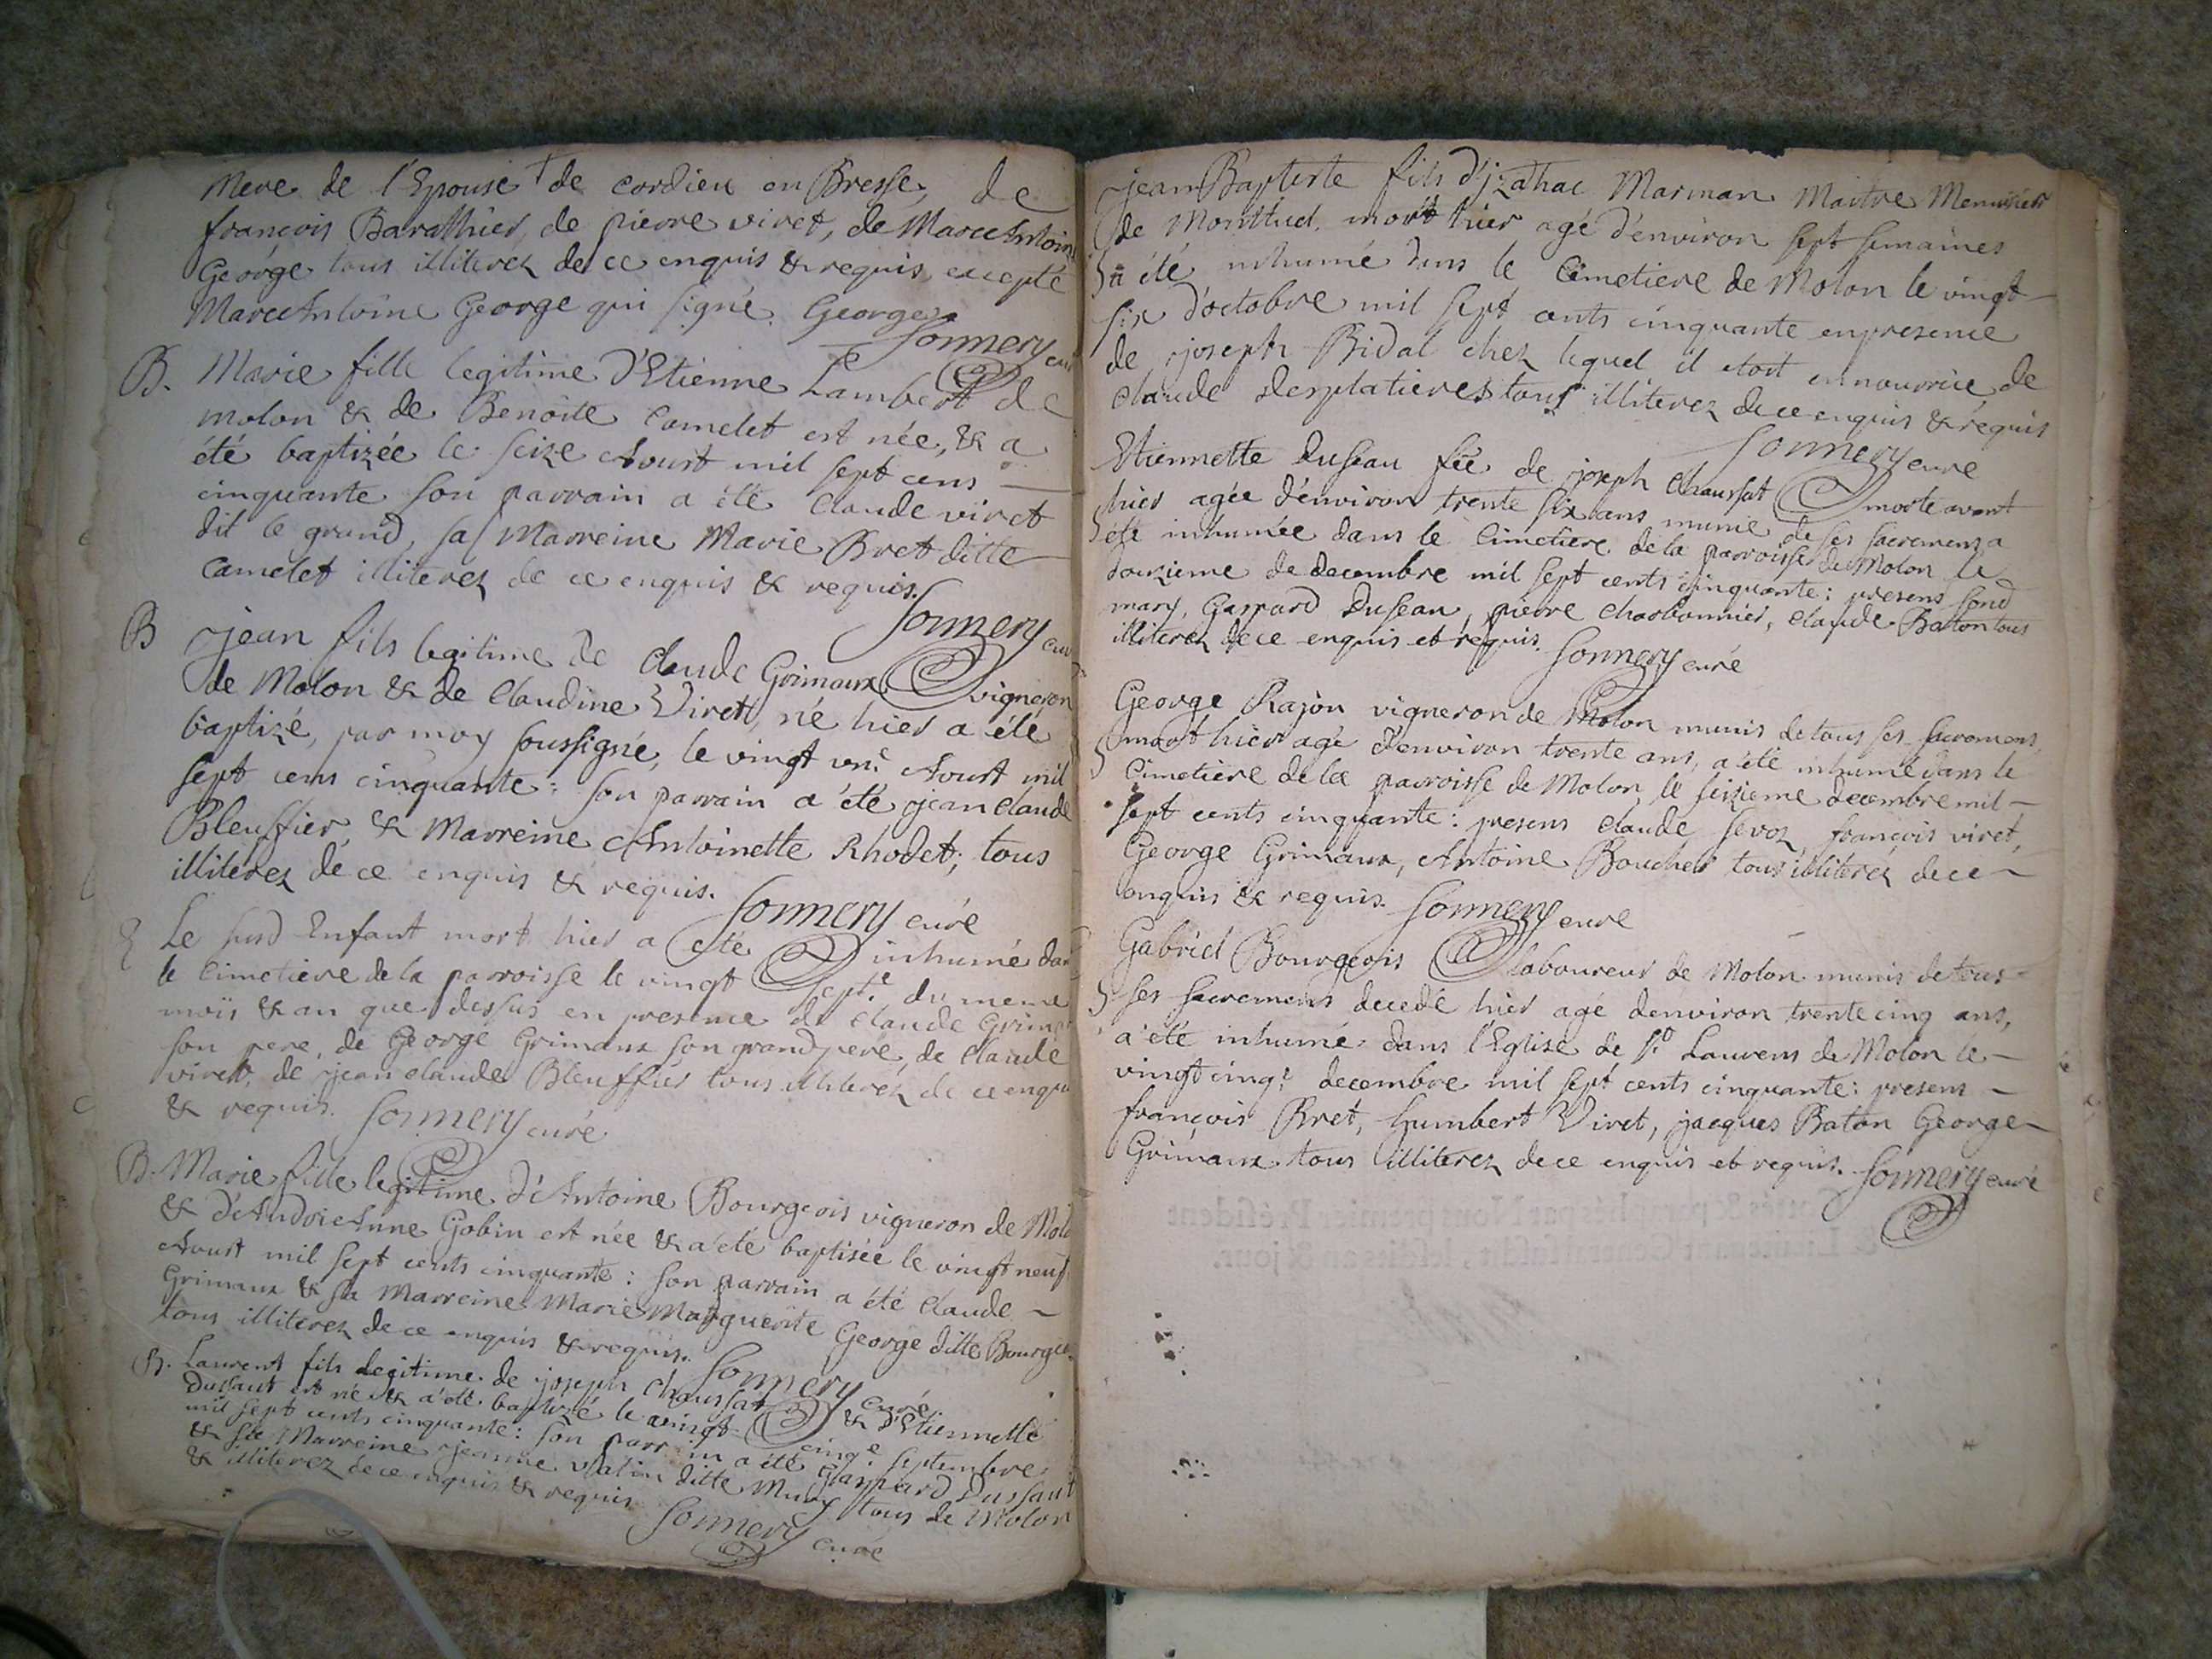 mere de l'Epouse † de cordieu en Bresse, de
françois Barathier, de pierre viret, de Marc Antoin
George tous illiterez de ce enquis & requis, excepté
Marc Antoine George qui signé. George
Sonnery curé
B. Marie fille legitime d'Etienne Lambert de
molon & de Benoite Camelet est née, & a
été baptizée le seize Aoust mil sept cens
cinquante son parrain a été Claude viret
dit le grand, sa Marreine Marie Bret ditte
Camelet illiterez de ce enquis & requis.
Sonnery curé
B jean fils legitime de Claude Grimaux vigneron
de Molon & de Claudine Viret, né hier a été
baptizé, par moy soussigné, le vingt une Aoust mil
sept cens cinquante: son parrain a été jean claude
Bleuffier, & Marreine Antoinette Rhodet; tous
illiterez de ce enquis & requis.
Sonnery curé
Le susd Enfant mort hier a eté inhumé dan
le Cimetiere de la parroisse le vingt sept.e du meme
mois & an que dessus en presence de claude Grimau
son pere, de George Grimaux son grand pere, de Claude
viret, de jean claude Bleuffier tous illiterez de ce enqu
& requis. Sonnery curé
B. Marie fille legitime d'Antoine Bourgeois vigneron de Molo
& d'Andrie Anne Gobin est née & a eté baptisée le vingt neuf
Aoust mil sept cents cinquante: son parrain a été claude
Grimaux & sa Marreine Marie Marguerite George ditte Bourgeo
tous illiterez de ce enquis & requis.
Sonnery curé
B. Laurent fils legitime de joseph Chaussat & d'Etiennette
Dussaut est né & a été baptizé le vingt cinq.e septembre
mil sept cents cinquante: son parrain a été Gaspard Dussaut
& sa Marreine jeanne ditte tous de Molon
& illiterez de ce enquis & requis
Sonnery curé
jean Baptiste fils d'jzahac Marman Maitre Menusier
de Montluel, mort hier agé d'environ sept semaines
a été inhumé dans le Cimetiere de Molon le vingt
six d'octobre mil sept cents cinquante en presence
de joseph Bidal chez lequel il etoit en nourrice de
claude Desplatieres tous illiterez de ce enquis & requis
Sonnery curé
Etiennette Duseau fẽe de joseph Chaussat morte avant
hier agée d'environ trente six ans munie de ses sacremens a
été inhumée dans le Cimetiere de la parroisse de Molon le
douzieme de decembre mil sept cents cinquante: presens sond
mary, Gaspard Duseau, pierre Charbonnier, claude Baton tous
illiterez de ce enquis et requis. Sonnery curé
George Rajon vigneron de Molon munis de tous ses sacremens,
mort hier agé d'environ trente ans, a été inhumé dans le
Cimetiere de la parroisse de Molon, le seizieme decembre mil
sept cents cinquante: presens claude Sevoz, françois viret,
George Grimaux, Antoine Boucher tous illiterez de ce
enquis & requis. Sonnery curé
Gabriel Bourgeois laboureur de Molon munis de tous
ses sacremens decedé hier agé denviron trente cinq ans,
a été inhumé dans l'Eglise de St Laurens de Molon le
vingt cinq.e decembre mil sept cents cinquante: presens
françois Bret, humbert Viret, jacques Baton George
Grimaux tous illiterez de ce enquis et requis. Sonnery curé